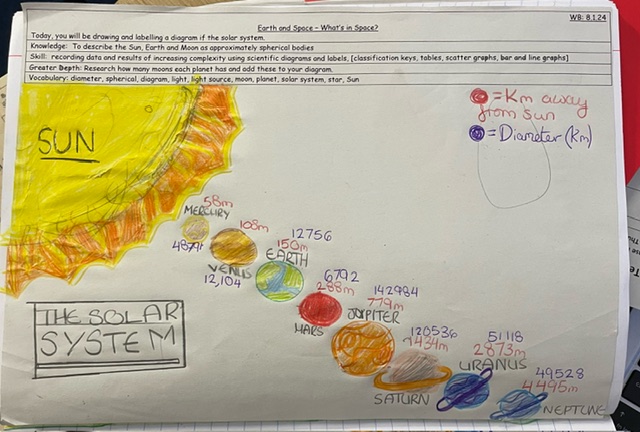 WB: 8.1.24
Earth and Space – What's in Space?
Today, you will be drawing and labelling a diagram if the solar system.
Knowledge: To describe the Sun, Earth and Moon as approximately spherical bodies
Skill: recording data and results of increasing complexity using scientific diagrams and labels, [classification keys, tables, scatter graphs, bar and line graphs]
Greater Depth: Research how many moons each planet has and add these to your diagram.
Vocabulary: diameter, spherical, diagram, light, light source, moon, planet, solar system, star, Sun
= Km away
from sun
= Diameter (Km)
SUN
58m
MERCURY
4879
108m
VENUS
12,104
12756
150m
EARTH
6792
288m
MARS
142984
779m
JUPITER
120536
1434m
SATURN
51118
2873m
URANUS
49528
4495m
NEPTUNE
THE SOLAR
SYSTEM